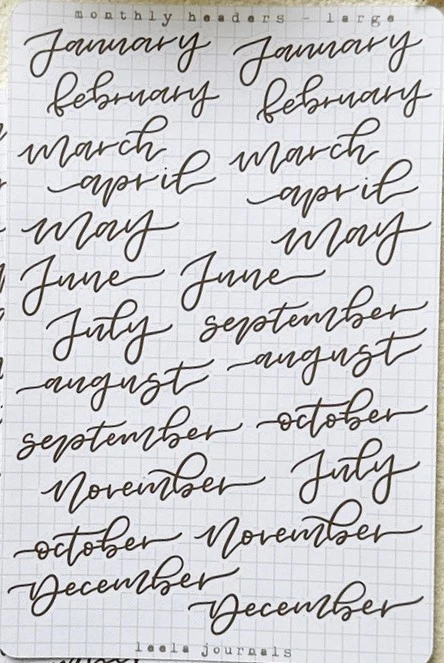 monthly headers - large
January January
february february
march march
april april
May May
June June
July september
august august
september october
November July
october November
December December
leela journals